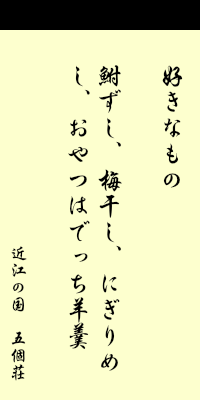 好きなもの
鮒ずし、梅干し、にぎりめ
し、おやつはでっち羊羹
近江の国　五個荘